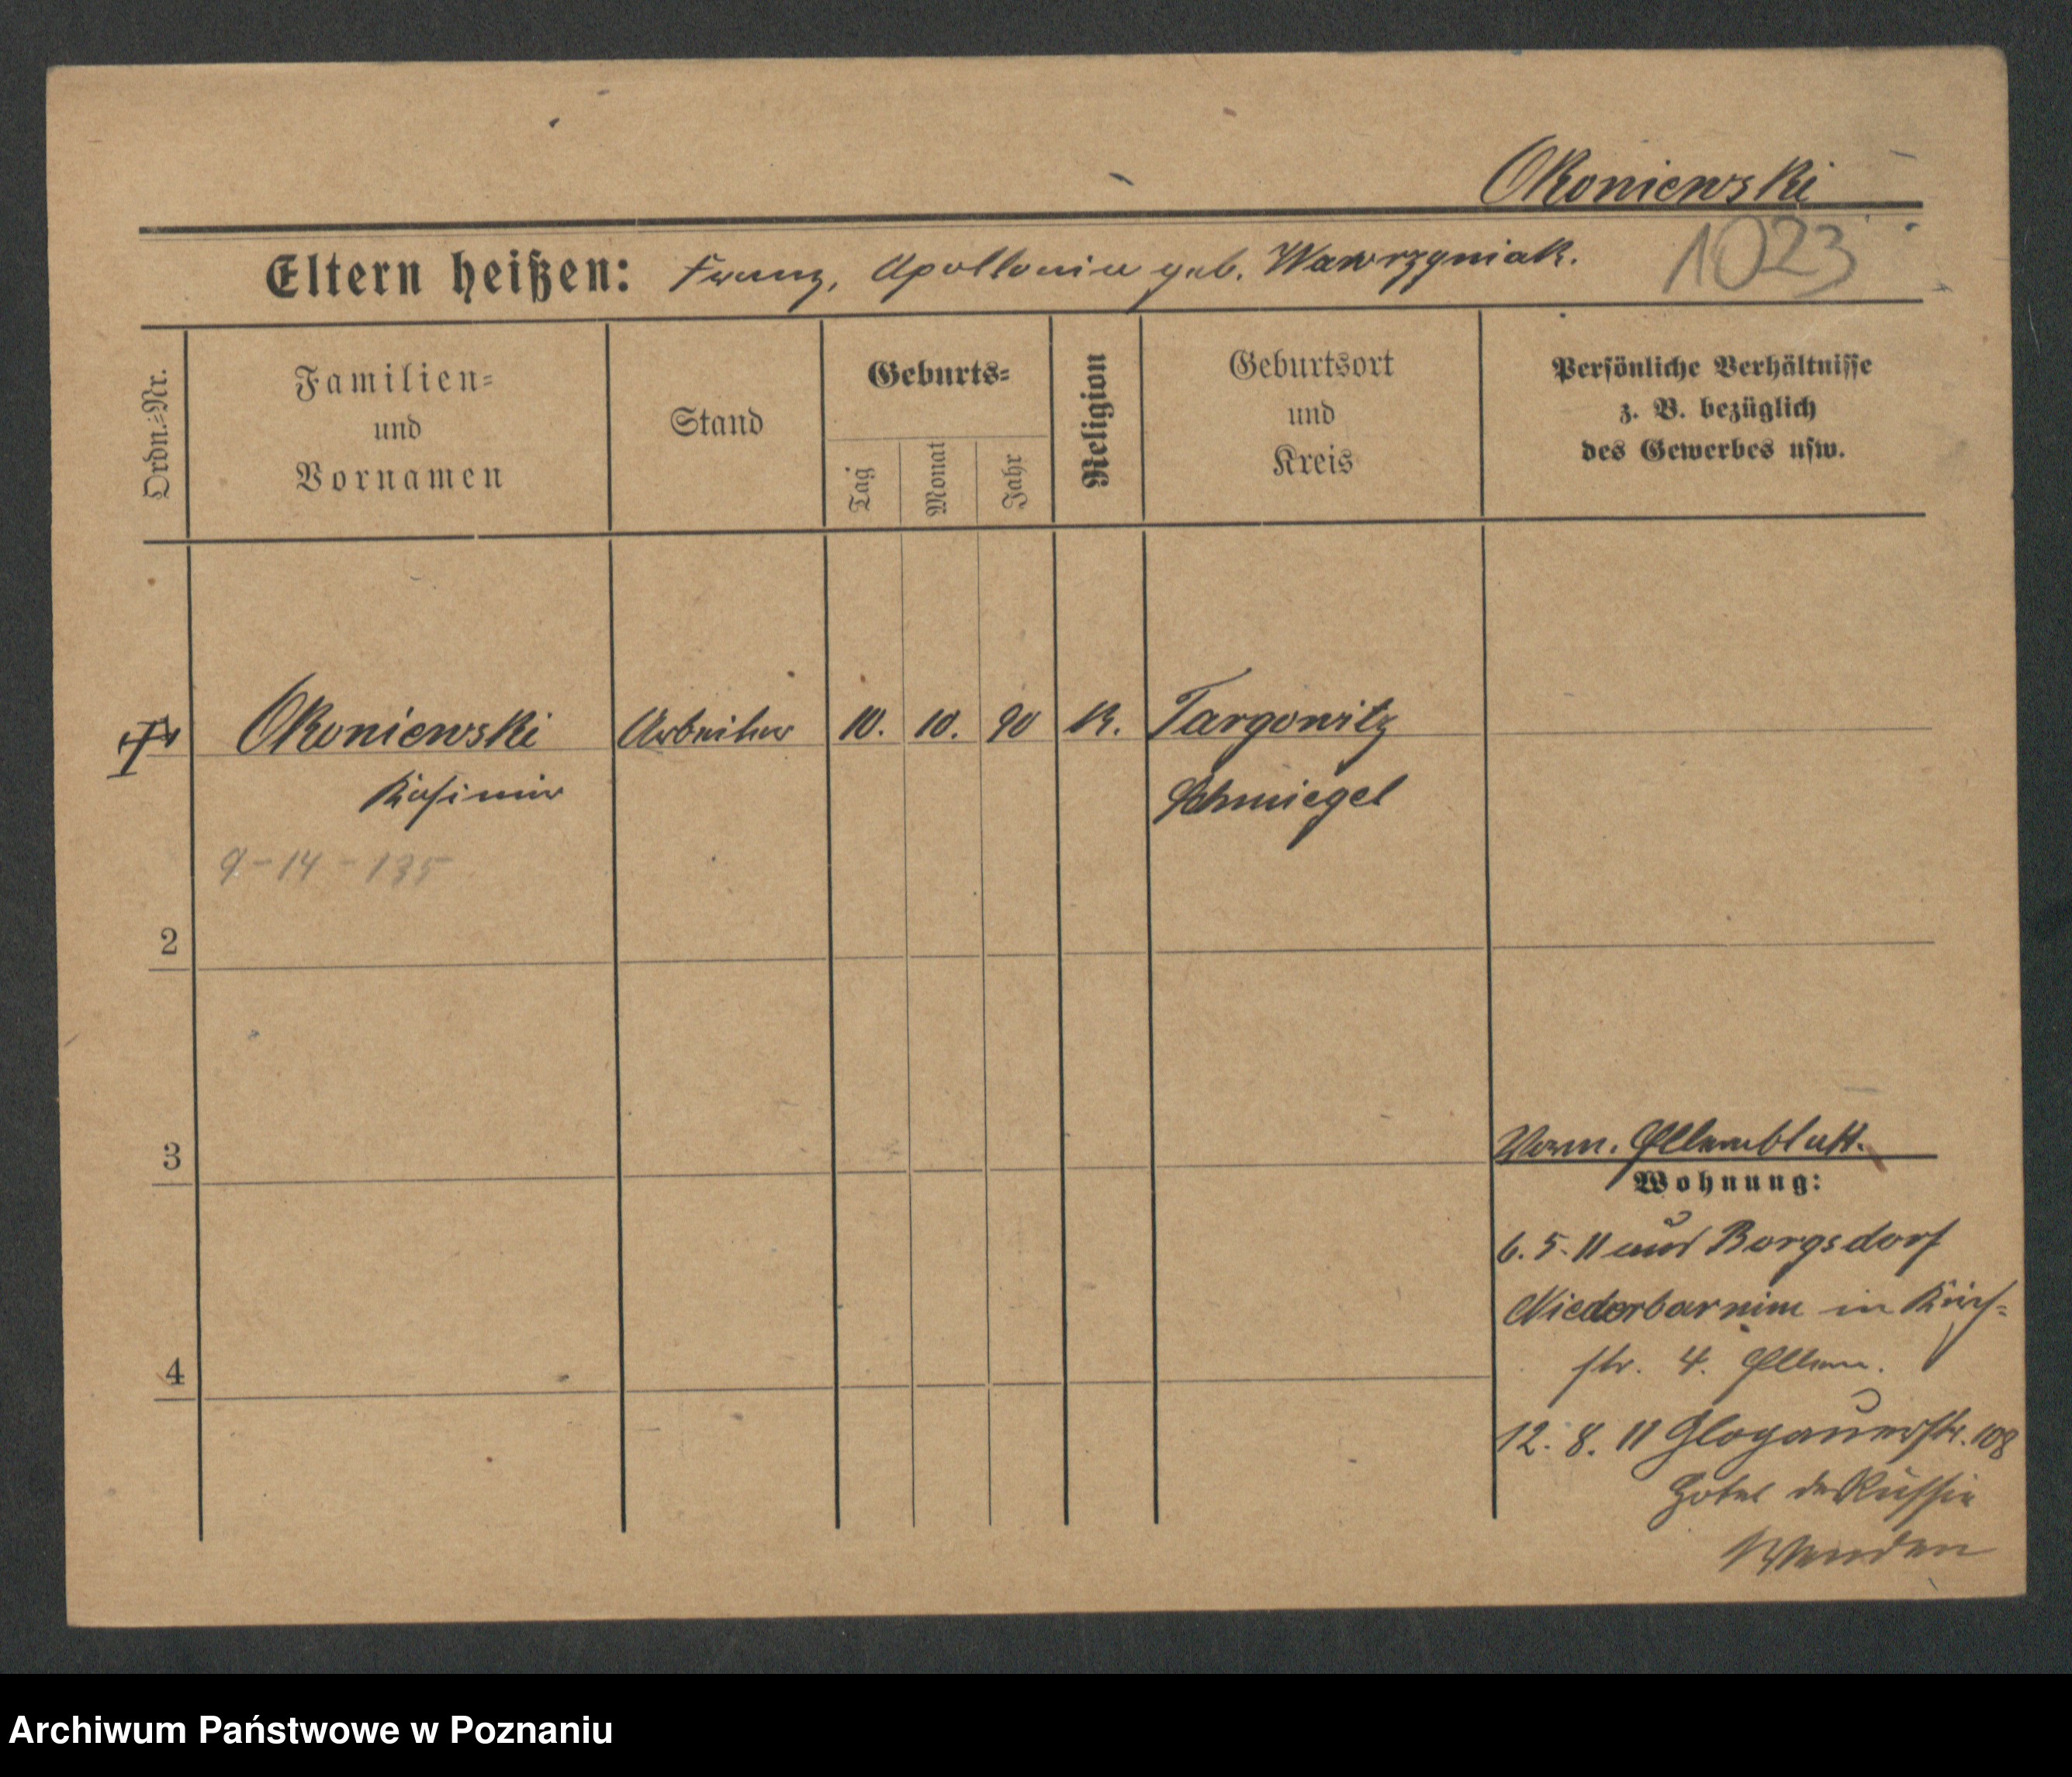 Okoniewski
1023
Eltern heißen: Franz, Apollonia geb. Wawrzyniak.
Ordn.-Nr.
Familien-
und
Vornamen
Stand
Geburts-
Tag
Monat
Jahr
Religion
Geburtsort
und
Kreis
Persönliche Verhältnisse
z. B. bezüglich
des Gewerbes usw.
Okoniewski Arbeiter 10. 10. 90 K. Targowitz
Kasimir Schmiegel
9-14-135
2
3
4
Wohnung:
6. 5. 11 aus Borgsdorf
Niederbarnim in
str. 4.
12. 8. 11 Glogauerstr. 108
Hotel de Russie
Archiwum Państwowe w Poznaniu